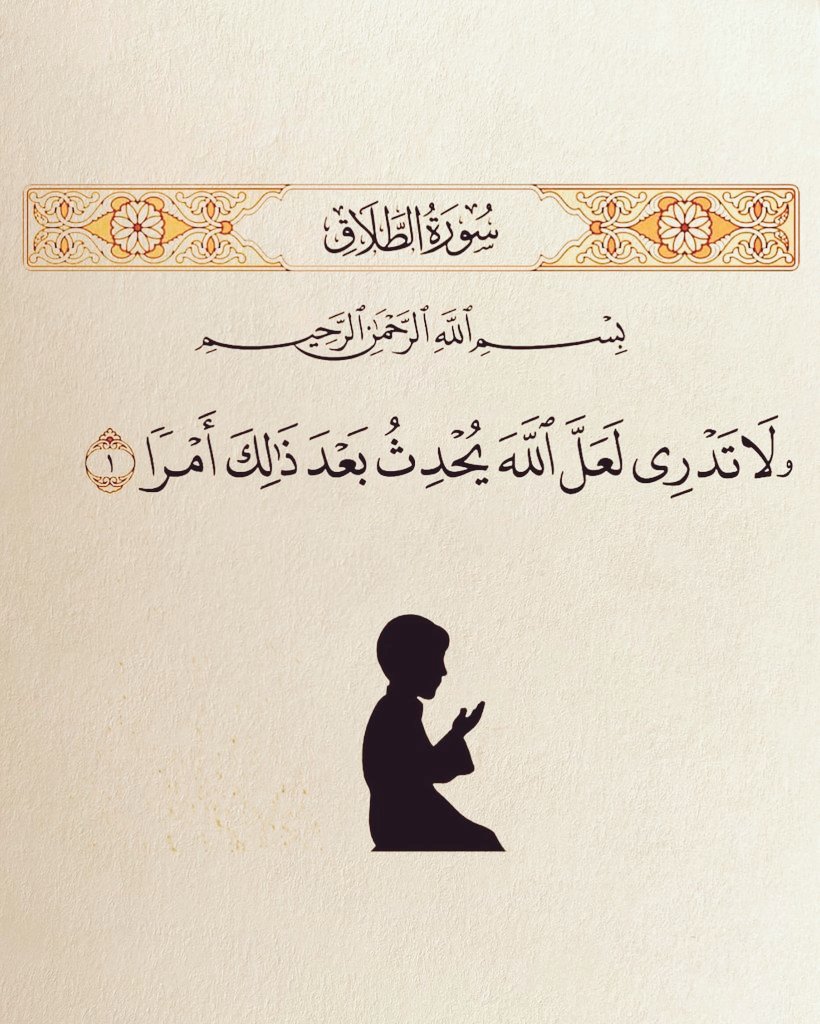 سُورَةُ الطَّلَاقِ
بِسْمِ ٱللَّهِ ٱلرَّحْمَٰنِ ٱلرَّحِيمِ
وَلَا تَدْرِى لَعَلَّ ٱللَّهَ يُحْدِثُ بَعْدَ ذَٰلِكَ أَمْرَا ١